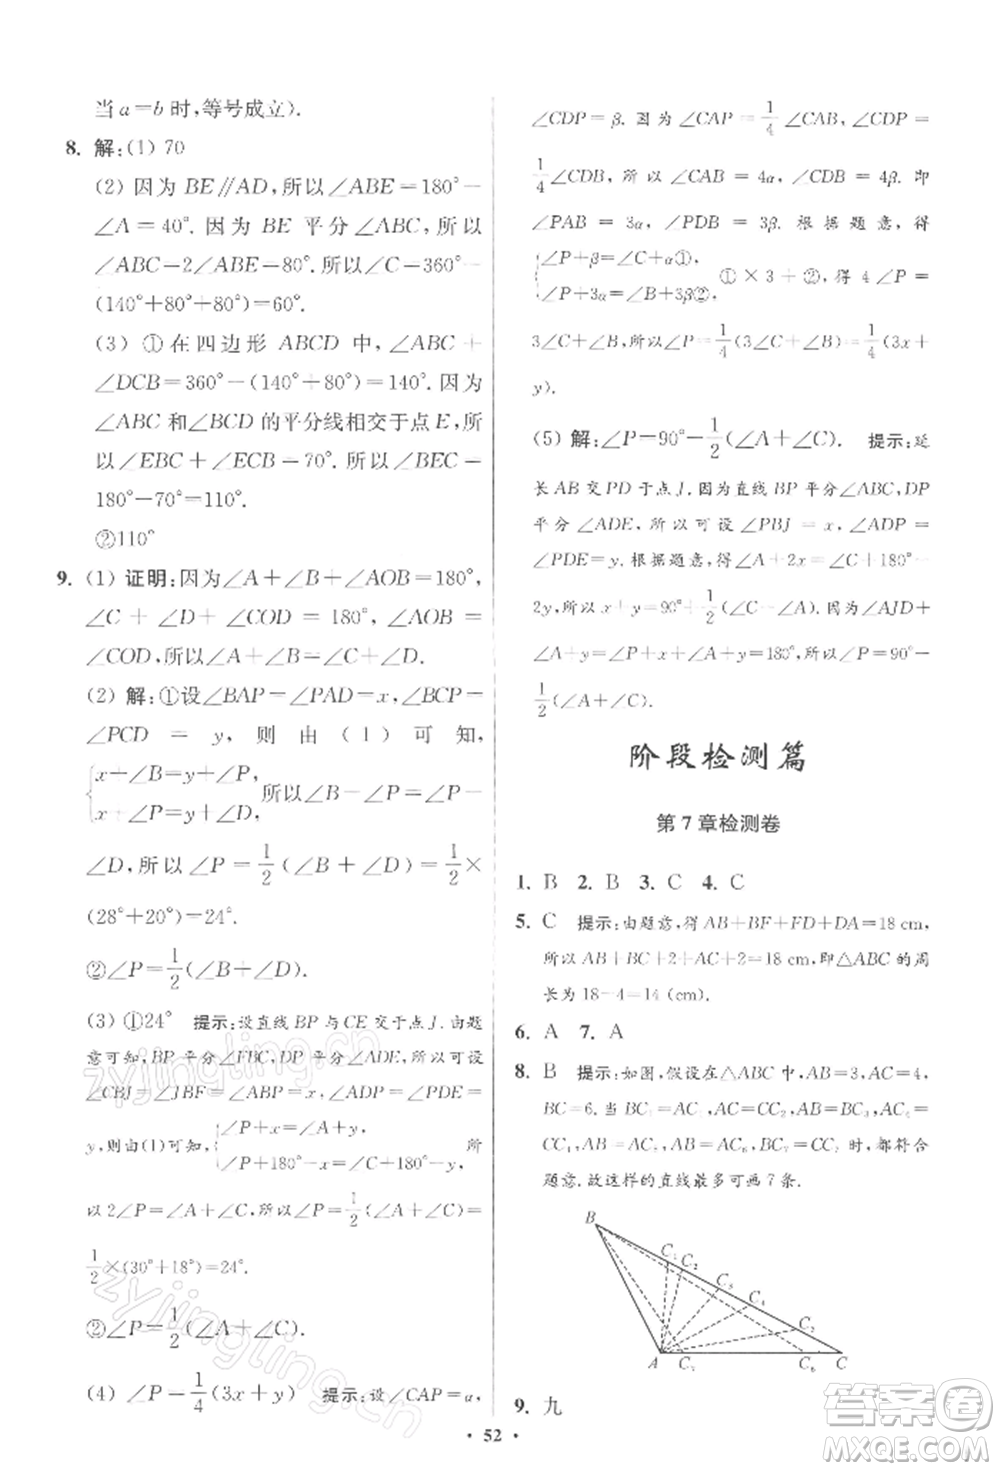 当 a=b 时,等号成立).
8. 解:(1) 70
(2) 因为 BE∥AD, 所以∠ABE=180°-
∠A=40°. 因为 BE 平分∠ABC, 所以
∠ABC=2∠ABE=80°. 所以∠C=360°-
(140°+80°+80°)=60°.
(3) ①在四边形 ABCD 中,∠ABC+
∠DCB=360°-(140°+80°)=140°. 因为
∠ABC 和∠BCD 的平分线相交于点 E, 所
以∠EBC+∠ECB=70°. 所以∠BEC=
180°-70°=110°.
②110°
9. (1) 证明:因为∠A+∠B+∠AOB=180°,
∠C+∠D+∠COD=180°,∠AOB=
∠COD,所以∠A+∠B=∠C+∠D.
(2) 解:①设∠BAP=∠PAD=x,∠BCP=
∠PCD = y, 则由(1)可知,
x+∠B=y+∠P,
x+∠P=y+∠D,
所以∠B-∠P=∠P-
∠D,所以∠P=1/2(∠B+∠D)=1/2×
(28°+20°)=24°.
②∠P=1/2(∠B+∠D).
(3) ①24° 提示:设直线 BP 与 CE 交于点 J. 由题
意可知,BP 平分∠FBC,DP 平分∠ADE,所以可设
∠CBJ=∠JBF=∠ABP=x,∠ADP=∠PDE=
y,则由(1)可知,
∠P+x=∠A+y,
∠P+180°-x=∠C+180°-y,
所
以 2∠P=∠A+∠C,所以∠P=1/2(∠A+∠C)=
1/2×(30°+18°)=24°.
②∠P=1/2(∠A+∠C).
(4) ∠P=1/4(3x+y) 提示:设∠CAP=α,
∠CDP=β. 因为∠CAP=1/4∠CAB,∠CDP=
1/4∠CDB, 所以∠CAB=4α,∠CDB=4β. 即
∠PAB=3α,∠PDB=3β. 根据题意,得
∠P+β=∠C+α①,
∠P+3α=∠B+3β②,
①×3+②,得 4∠P=
3∠C+∠B,所以∠P=1/4(3∠C+∠B)=1/4(3x+
y).
(5) 解:∠P=90°-1/2(∠A+∠C). 提示:延
长 AB 交 PD 于点 J. 因为直线 BP 平分∠ABC,DP
平分∠ADE, 所以可设∠PBJ=x,∠ADP=
∠PDE=y. 根据题意,得∠A+2x=∠C+180°-
2y,所以 x+y=90°+1/2(∠C-∠A). 因为∠AJD+
∠A+y=∠P+x+∠A+y=180°,所以∠P=90°-
1/2(∠A+∠C).
阶段检测篇
第 7 章检测卷
1. B 2. B 3. C 4. C
5. C 提示:由题意,得 AB+BF+FD+DA=18 cm,
所以 AB+BC+2+AC+2=18 cm,即△ABC 的周
长为 18-4=14 (cm).
6. A 7. A
8. B 提示:如图,假设在△ABC 中,AB=3,AC=4,
BC=6. 当 BC₁=AC₁,AC=CC₂,AB=BC₃,AC₄=
CC₄,AB=AC₅,AB=AC₆,BC₇=CC₇ 时,都符合
题意.故这样的直线最多可画 7 条.
B
C₁
C₂
C₃
C₄
C₅
A C₇ C₆ C
9. 九
• 52 •
zyjingling.cn
zyjingling.cn
答案圈
MXQE.COM